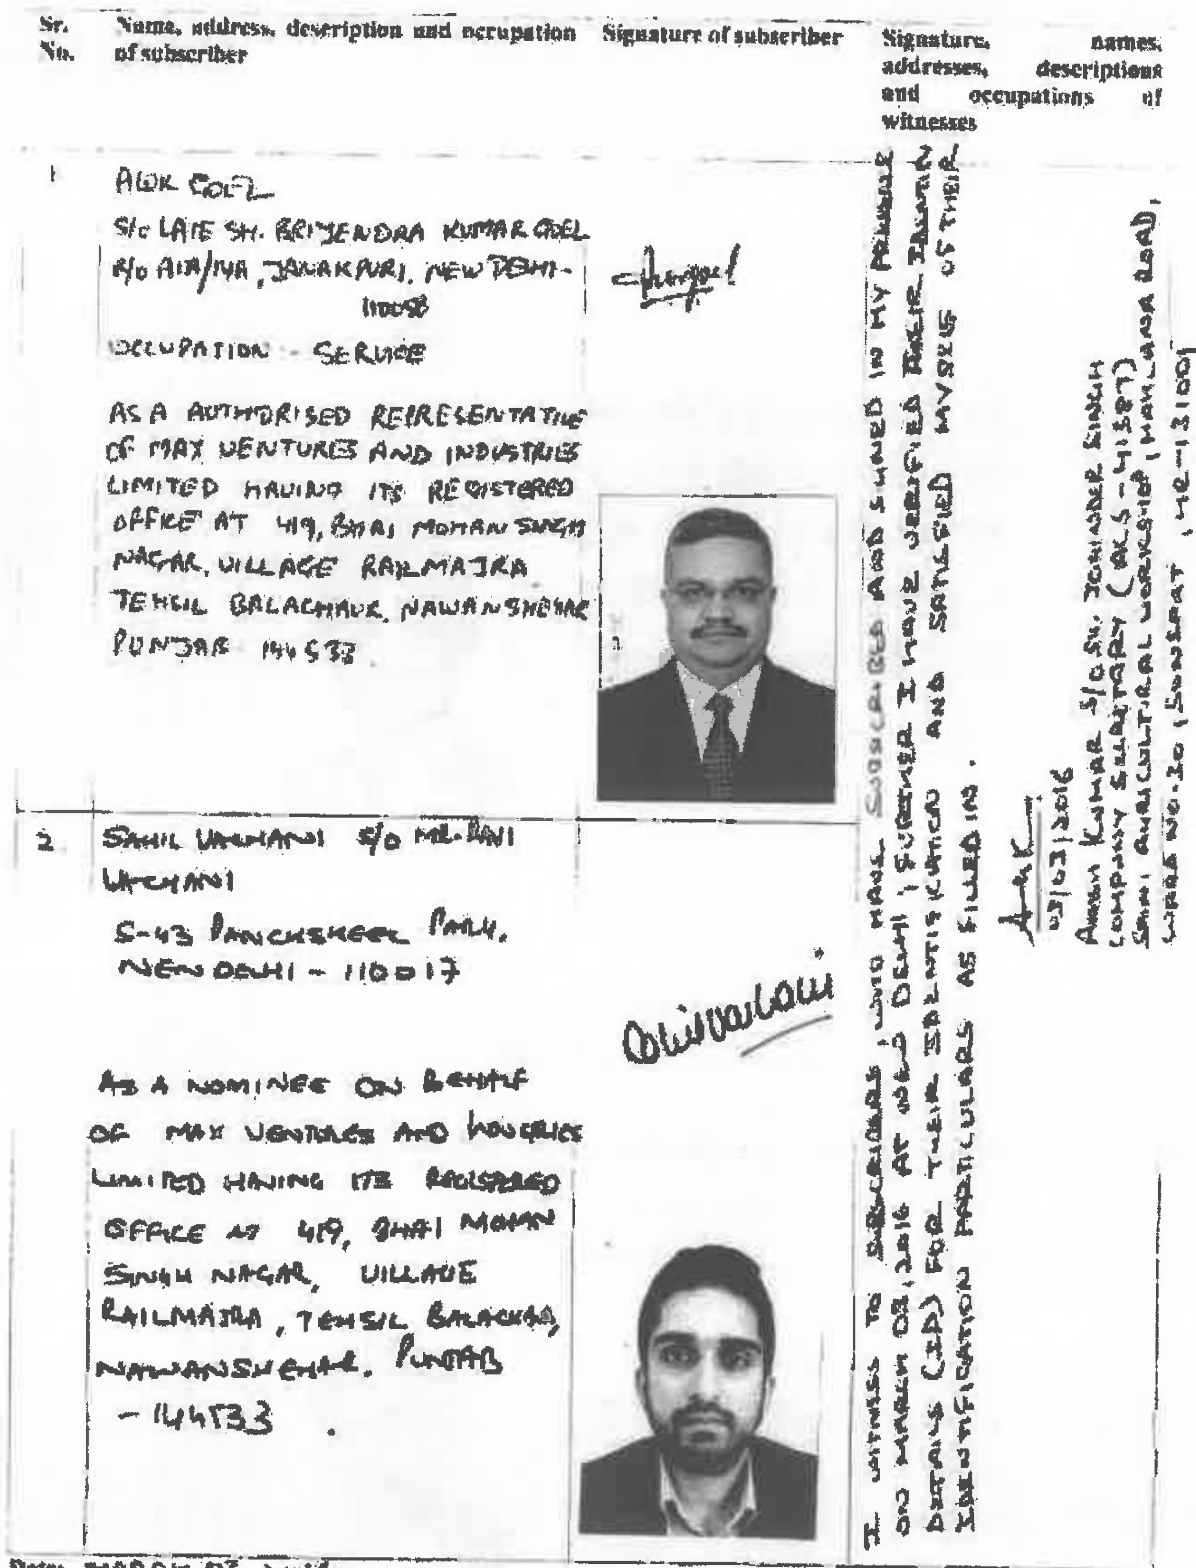 Sr. No.
Name, address, description and occupation of subscriber
Signature of subscriber
Signature, names, addresses, descriptions and occupations of witnesses
1
GOEL
S/o LATE SH. BRIJENDRA KUMAR GOEL
R/o A1A/14A, JANAKPURI, NEW DELHI-
110058
OCCUPATION - SERVICE
AS A AUTHORISED REPRESENTATIVE
OF MAX VENTURES AND INDUSTRIES
LIMITED HAVING ITS REGISTERED
OFFICE AT 419, BHAI MOHAN SINGH
NAGAR, VILLAGE RAILMAJRA
TEHSIL BALACHAUR, NAWANSHEHAR
PUNJAB 144533
2
SAHIL VACHANI S/o MR. RAVI
VACHANI
S-43 PANCHSHEEL PARK,
NEW DELHI - 110017
AS A NOMINEE ON BEHALF
OF MAX VENTURES AND INDUSTRIES
LIMITED HAVING ITS REGISTERED
OFFICE AT 419, BHAI MOHAN
SINGH NAGAR, VILLAGE
RAILMAJRA, TEHSIL
NAWANSHEHAR, PUNJAB
- 144533
I WITNESS TO SUBSCRIBERS, WHO HAVE SUBSCRIBED AND SIGNED IN MY PRESENCE
ON MARCH 03, 2016 AT NEW DELHI, FURTHER I HAVE VERIFIED THEIR IDENTITY
DETAILS (ID) FOR THEIR IDENTIFICATION AND SATISFIED MYSELF OF THEIR
IDENTIFICATION PARTICULARS AS FILLED IN.
03/03/2016
KUMAR S/O SH. JOGINDER SINGH
COMPANY SECRETARY (ACS-41587)
SAINI AGRICULTURAL WORKSHOP, ROAD,
WARD NO-20, SONEPAT, HR-131001
Date: MARCH 03, 2016